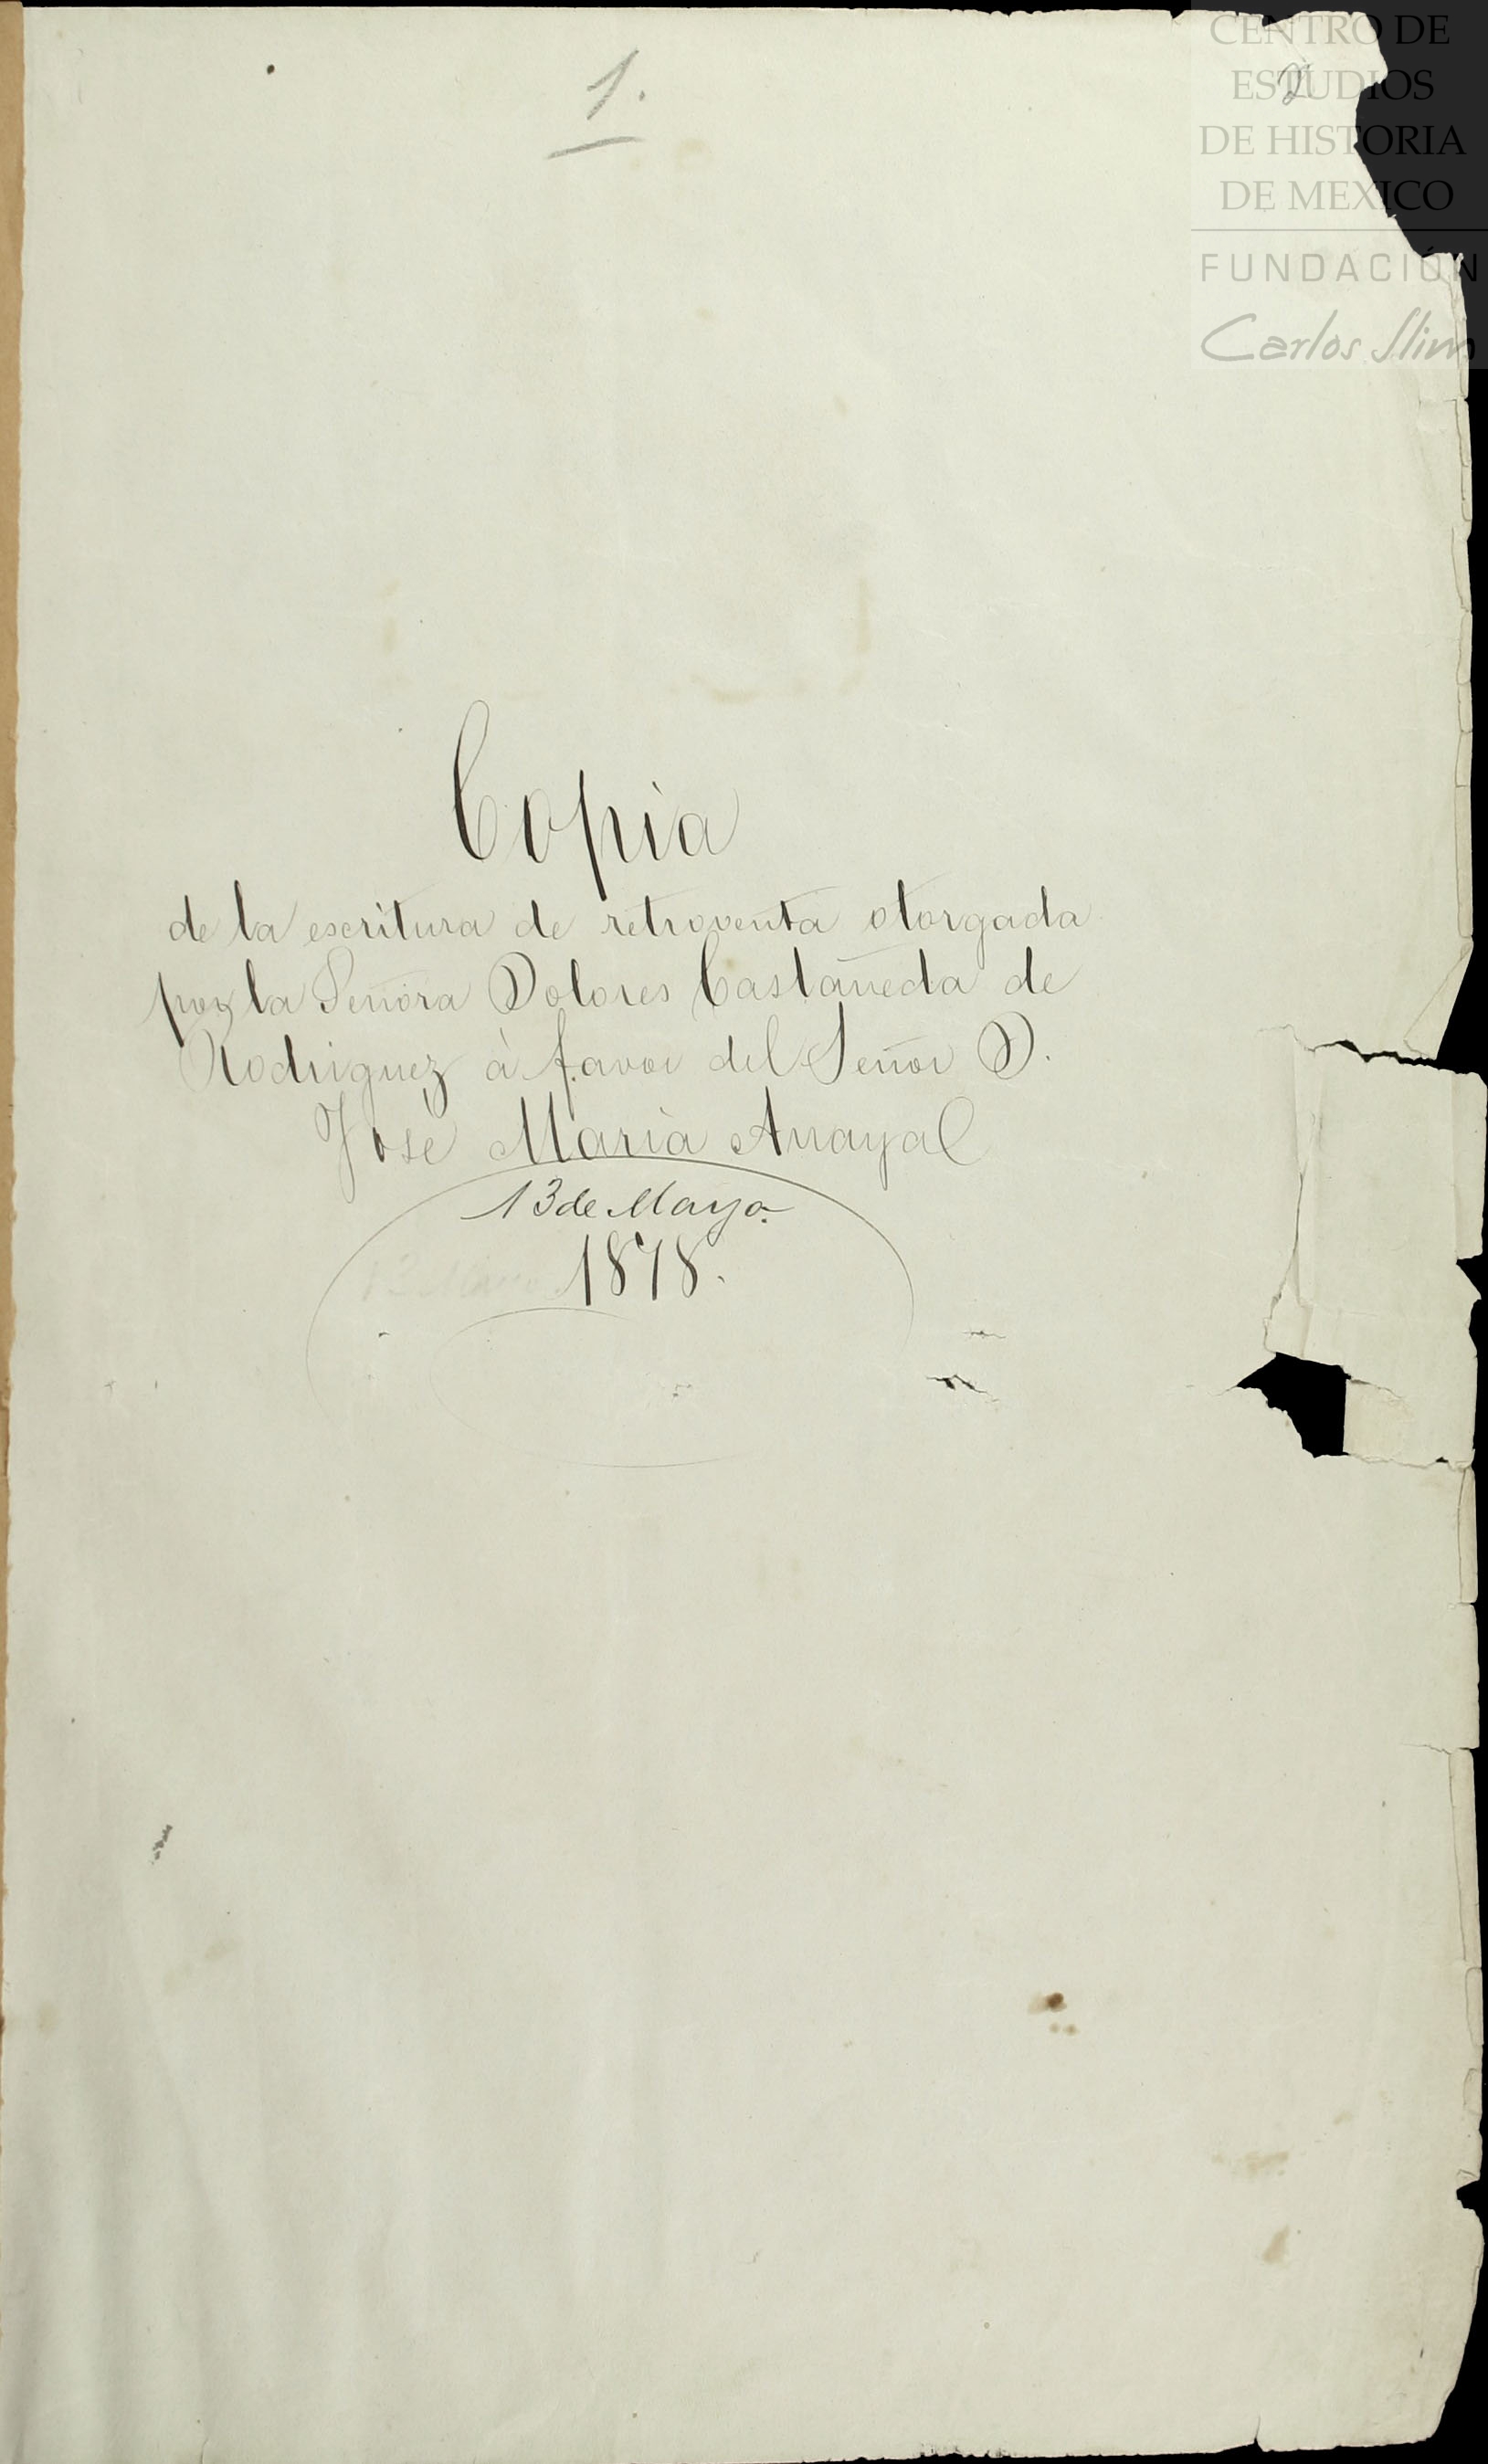 1.
2
CENTRO DE
ESTUDIOS
DE HISTORIA
DE MEXICO
FUNDACIÓN
Carlos Slim
Copia
de la escritura de retroventa otorgada
por la Señora Dolores Castañeda de
Rodriguez à favor del Señor D.
José Maria Anaya
13 de Mayo.
1878.